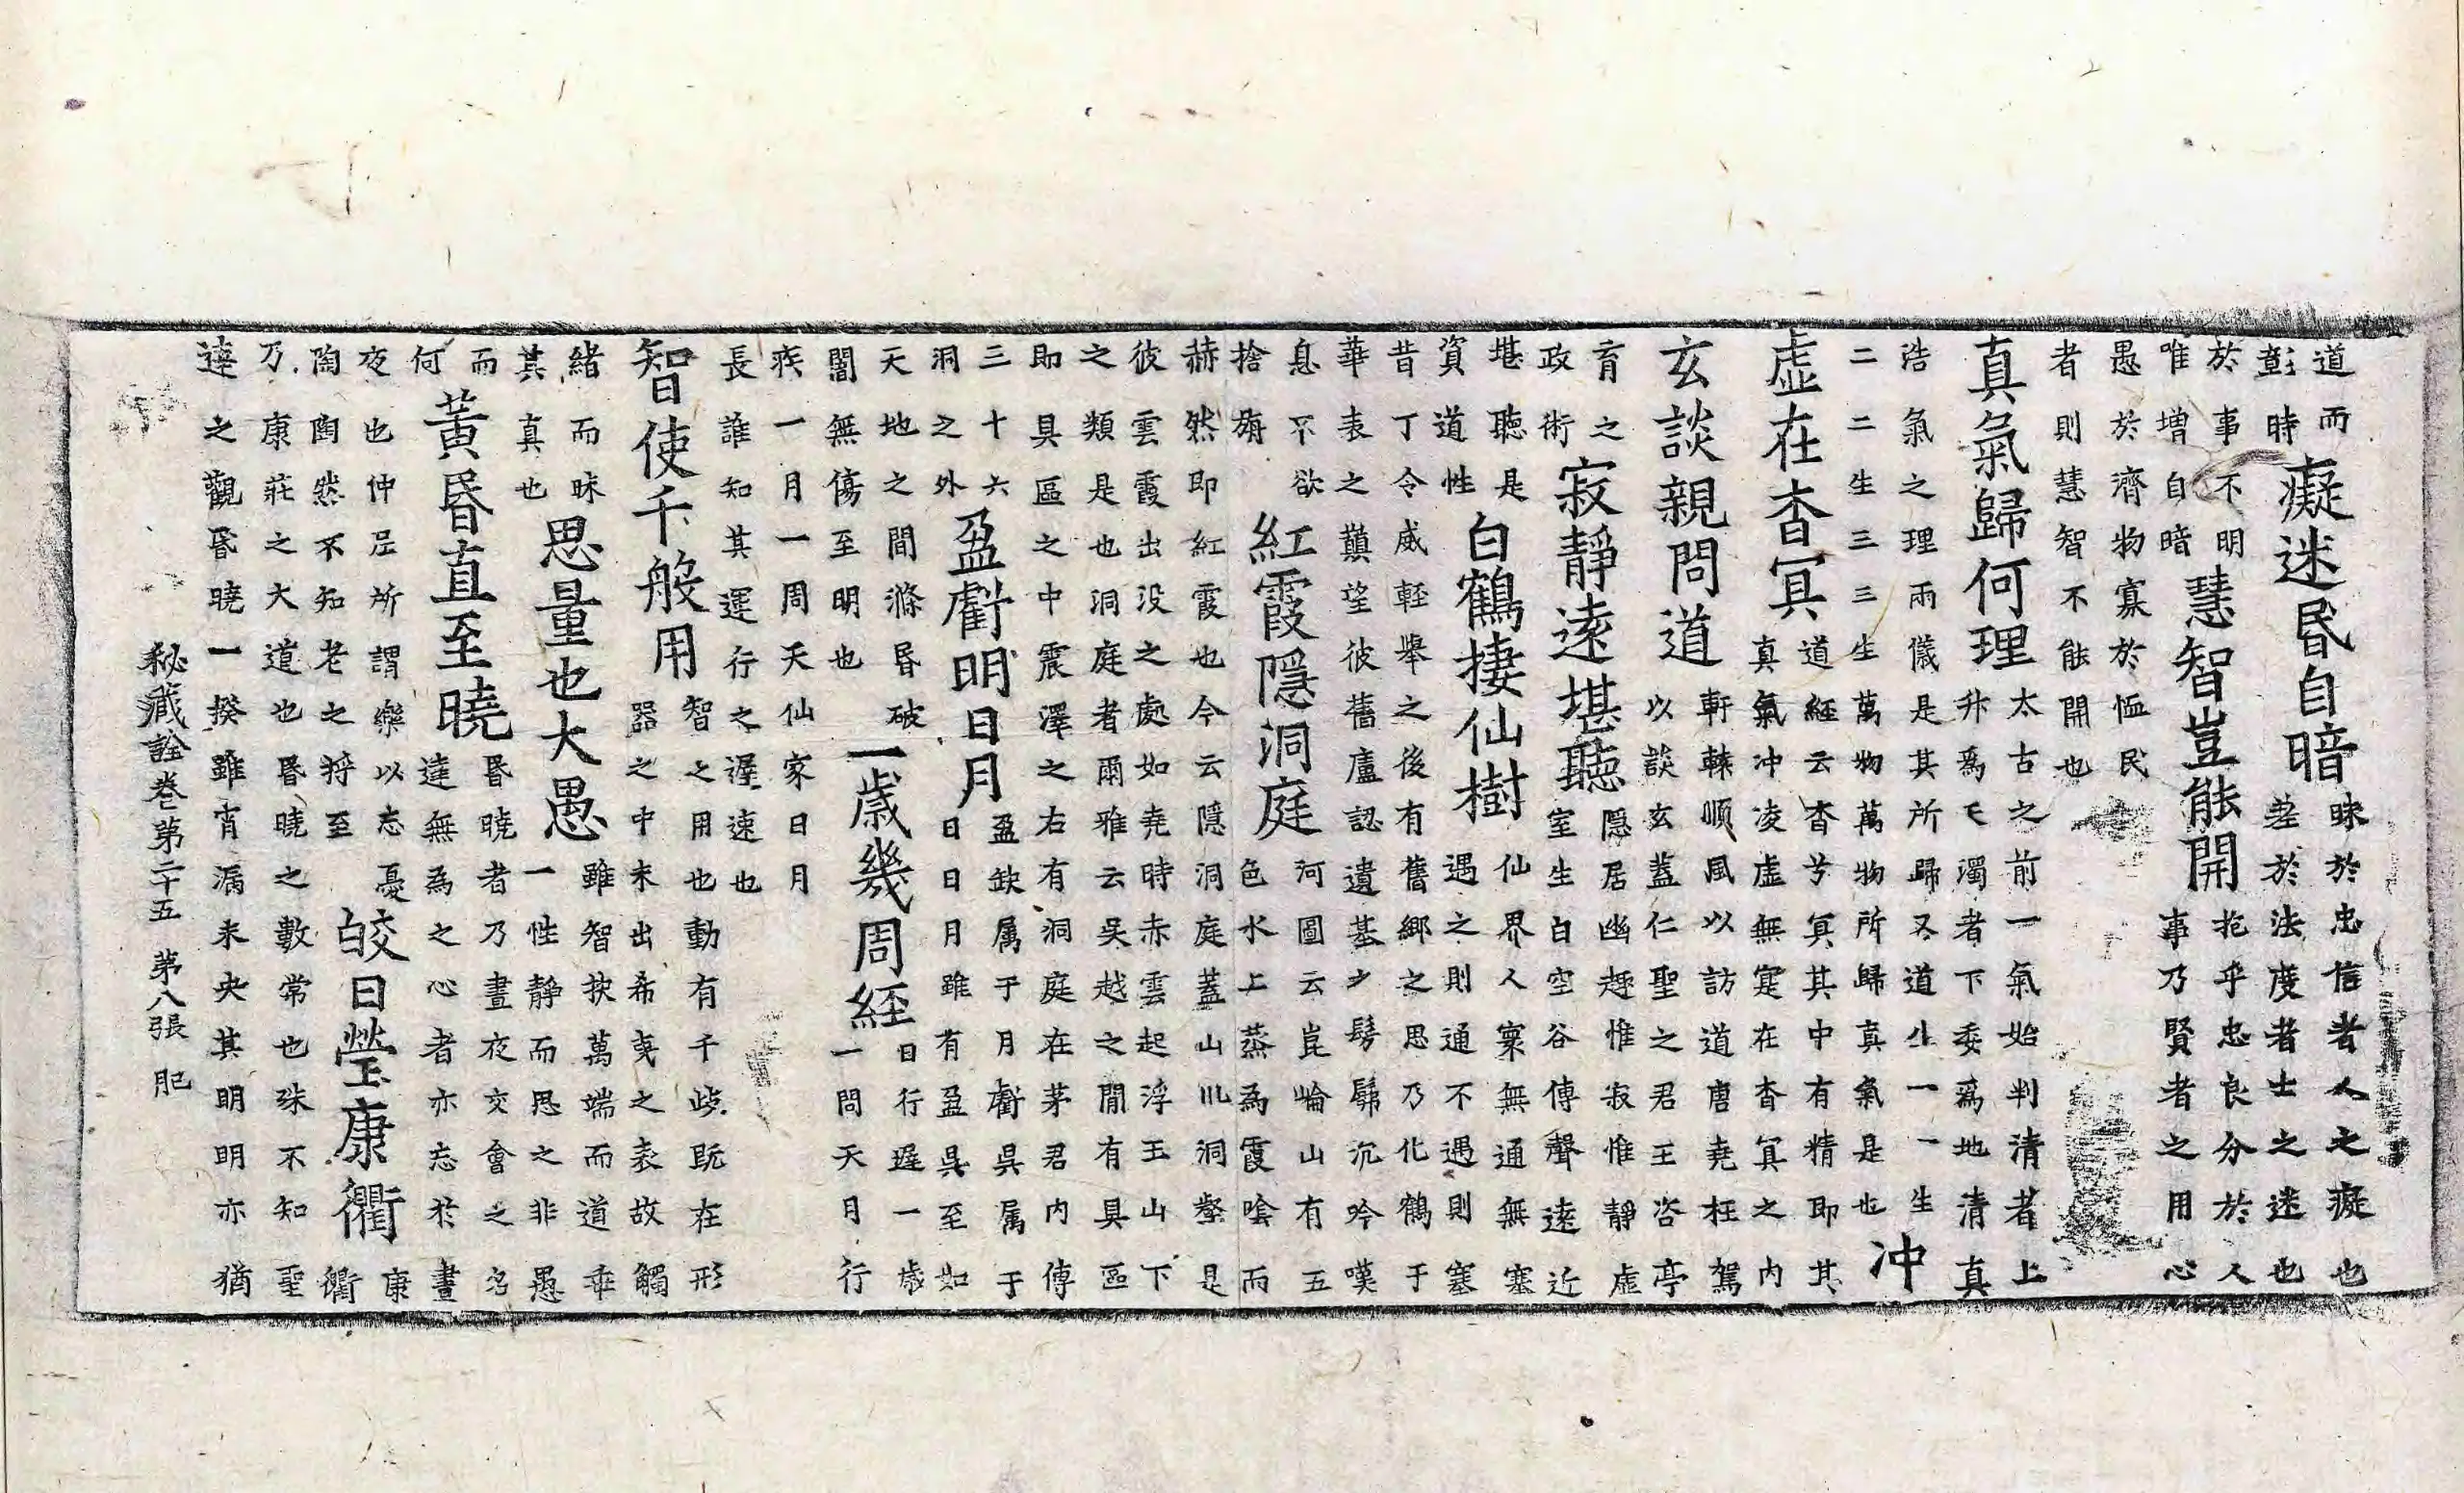 道而
彰時
癡迷昏自暗
昧於忠信者人之癡也
差於法度者士之迷也
於事不明
唯增自暗
慧智豈能開
抱乎忠良分於人
事乃賢者之用心
愚於濟物寡於恤民
者則慧智不能開也
真氣歸何理
太古之前一氣始判清者上
升爲乇濁者下委爲地清真
浩氣之理兩儀是其所歸又道生一一生
二二生三三生萬物萬物所歸真氣是也
冲
虛在杳冥
道經云杳兮冥其中有精即其
真氣冲凌虛無寔在杳冥之内
玄談親問道
軒轅順風以訪道唐堯枉駕
以談玄蓋仁聖之君王咨亭
育之
政術
寂靜遠堪聽
隱居幽趣惟寂惟靜虛
室生白空谷傳聲遠近
堪聽是
資道性
白鶴捿仙樹
仙界人寞無通無塞
遇之則通不遇則塞
昔丁令威輕舉之後有舊鄉之思乃化鶴于
華表之巔望彼舊廬認遺基少髣髴沉吟嘆
息不欲
捨旃
紅霞隱洞庭
河圖云崑崙山有五
色水上蒸為霞喰而
赫然即紅霞也今云隱洞庭蓋山川洞壑是
彼雲霞出没之處如堯時赤雲起浮玉山下
之類是也洞庭者爾雅云吳越之間有具區
即具區之中震澤之右有洞庭在茅君内傳
三十六
洞之外
盈虧明日月
盈缺属于月虧昃属于
日日月雖有盈昃至如
天地之間滌昏破
闇無傷至明也
一歲幾周経
日行遲一歲
一問天月行
疾一月一周天仙家日月
長誰知其運行之遲速也
智使千般用
智之用也動有千岐既在形
器之中未出希夷之表故觸
緒而昧
其真也
思量也大愚
雖智挾萬端而道乖
一性靜而思之非愚
而
何
黃昏直至曉
昏曉者乃晝夜交會之名
達無為之心者亦忘於晝
夜也仲尼所謂樂以忘憂
陶陶然不知老之將至
皎日瑩康衢
康
衢
乃康莊之大道也昏曉之數常也殊不知聖
達之觀昏曉一揆雖宵漏未央其明明亦猶
秘藏詮卷第二十五 第八張 肥